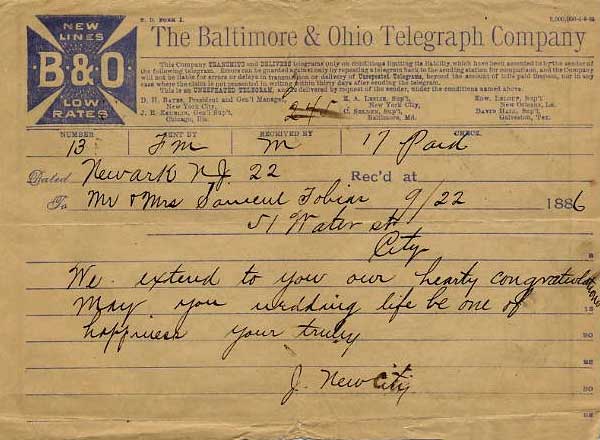 T. D. FORM 1.
NEW
LINES
B&O
LOW
RATES
The Baltimore & Ohio Telegraph Company
This Company TRANSMITS and DELIVERS telegrams only on conditions limiting its liability, which have been assented to by the sender of
the following telegram. Errors can be guarded against only by repeating a telegram back to the sending station for comparison, and the Company
will not be liable for errors or delays in transmission or delivery of Unrepeated Telegrams, beyond the amount of tolls paid thereon, nor in any
case where the claim is not presented in writing within thirty days after sending the telegram.
This is an UNREPEATED TELEGRAM, and is delivered by request of the sender, under the conditions named above.
D. H. BATES, President and Gen'l Manager,
New York City.
Gen'l Sup't,
Chicago, Ills.
245
Sup't,
New York City.
Sup't,
Baltimore, Md.
Sup't,
New Orleans, La.
Sup't,
Galveston, Tex.
NUMBER SENT BY RECEIVED BY CHECK
13 Fm M 17 Paid
Dated Newark NJ 22 Rec'd at
To Mr & Mrs Samuel Tobias 9/22 1886
51 Water st
City
We extend to you our hearty congratulations
May you wedding life be one of
happiness your truly
J. New City